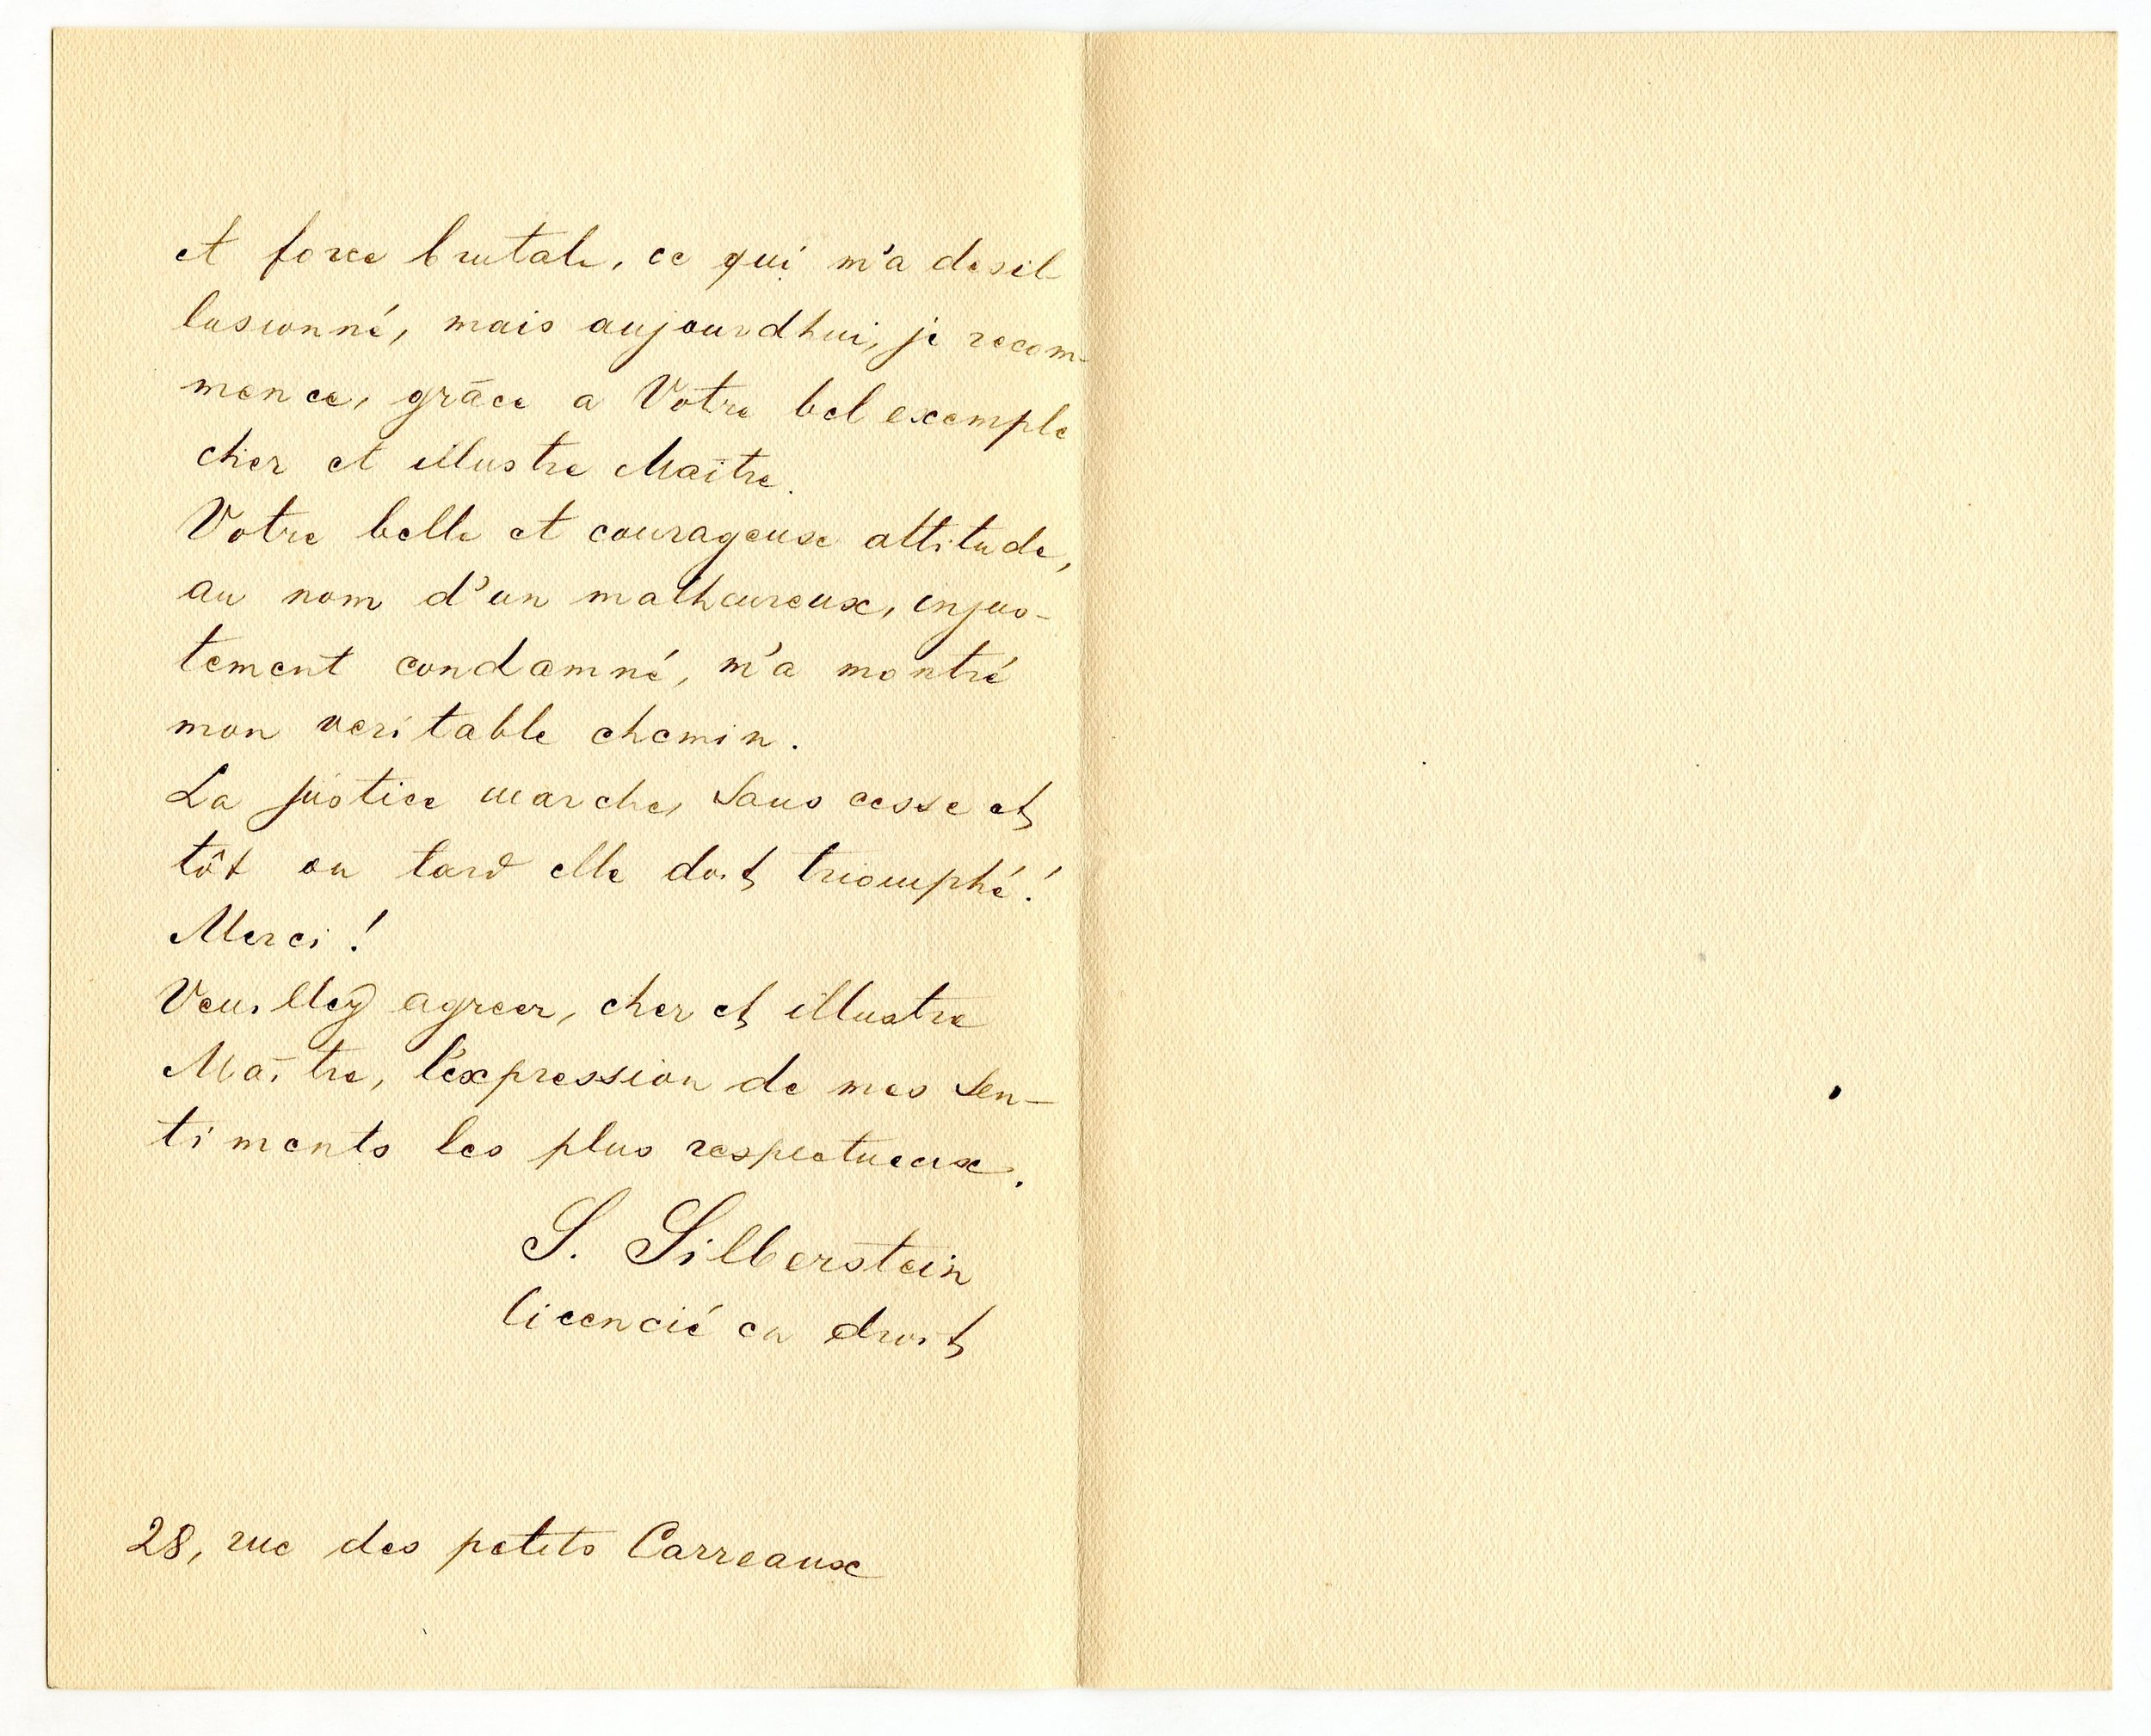 et force brutale, ce qui m'a desil
lusionné, mais aujourdhui, je recom-
mence, grâce a Votre bel exemple
cher et illustre Maître.
Votre belle et courageuse attitude,
au nom d'un malheureux, injus-
tement condamné, m'a montré
mon veritable chemin.
La justice marche, sans cesse et
tôt ou tard elle doit triomphé!
Merci !
Veuillez agreer, cher et illustre
Maître, l'expression de mes sen-
timents les plus respectueux.
S. Silberstein
licencié en droit
28, rue des petits Carreaux